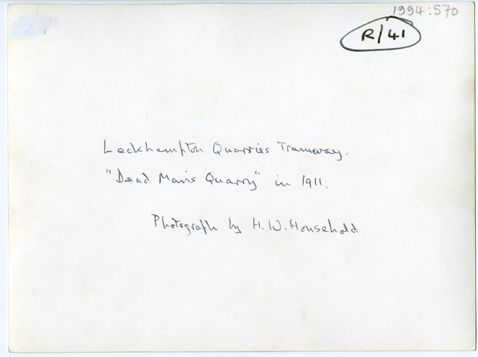 1994:570
R/41
Leckhampton Quarries Tramway.
"Dead Man's Quarry" in 1911.
Photograph by H.W. Household.